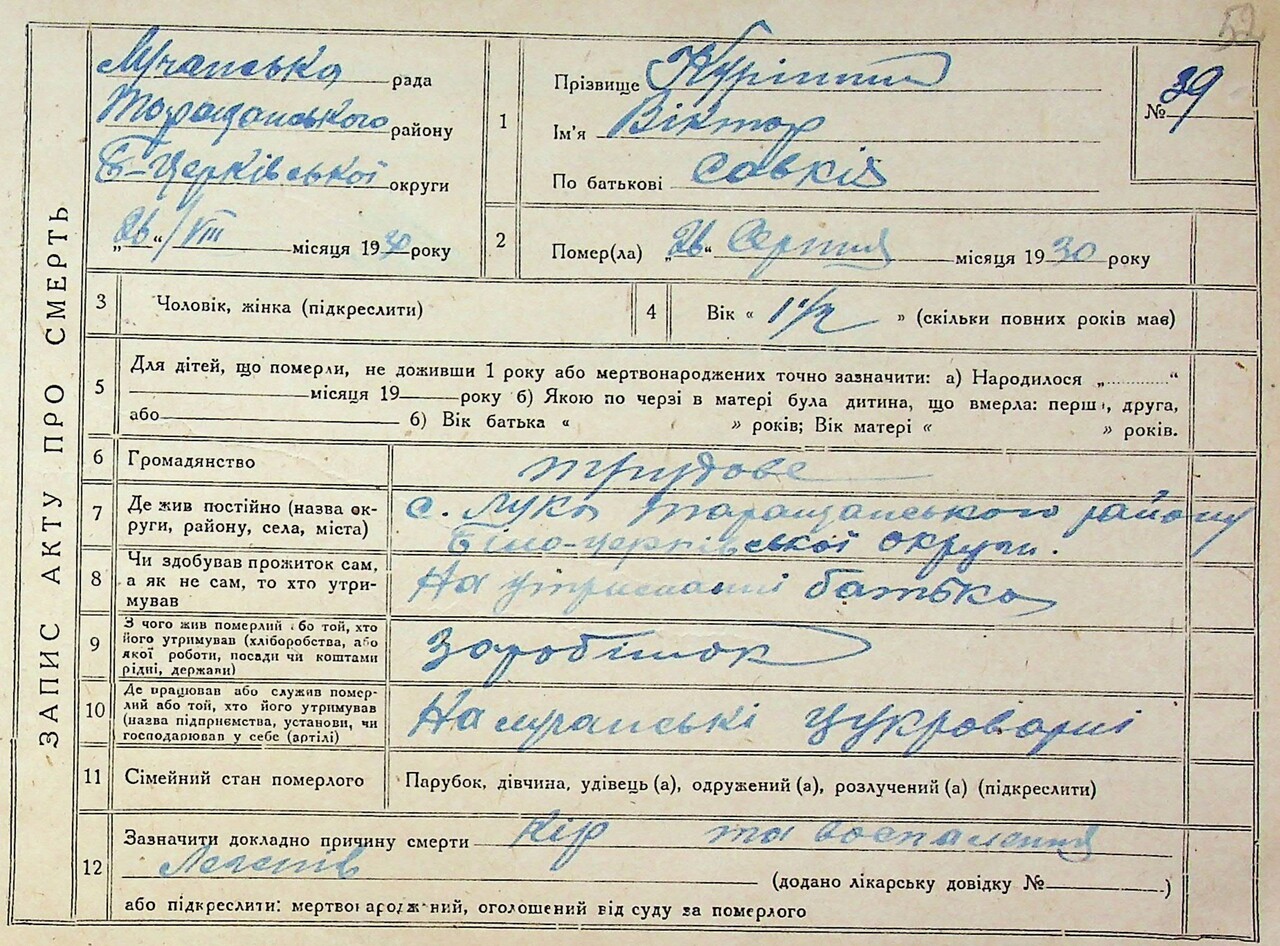 52
ЗАПИС АКТУ ПРО СМЕРТЬ
Лучанська рада
Таращанського району
Б-Церківської округи
„26“/VIII місяця 1930 року
1
Прізвище
Ім'я Віктор
По батькові Савків
№ 39
2
Помер(ла) „26“ Серпня місяця 1930 року
3
Чоловік, жінка (підкреслити)
4
Вік « 1 1/2 » (скільки повних років мав)
5
Для дітей, що померли, не доживши 1 року або мертвонароджених точно зазначити: а) Народилося „............“
місяця 19 року б) Якою по черзі в матері була дитина, що вмерла: перша, друга,
або б) Вік батька « » років; Вік матері « » років.
6
Громадянство трудове
7
Де жив постійно (назва ок-
руги, району, села, міста)
с. Лука Таращанського району
Біло-церківської округи.
8
Чи здобував прожиток сам,
а як не сам, то хто утри-
мував
На утриманні батька
9
З чого жив померлий або той, хто
його утримував (хліборобства, або
якої роботи, посади чи коштами
рідні, держави)
Заробіток
10
Де працював або служив помер-
лий або той, хто його утримував
(назва підприємства, установи, чи
господарював у себе (артілі)
На лучанські цукроварні
11
Сімейний стан померлого
Парубок, дівчина, удівець (а), одружений (а), розлучений (а) (підкреслити)
12
Зазначити докладно причину смерти Кір та воспалення
Легенів (додано лікарську довідку № )
або підкреслити: мертвонароджений, оголошений від суду за померлого